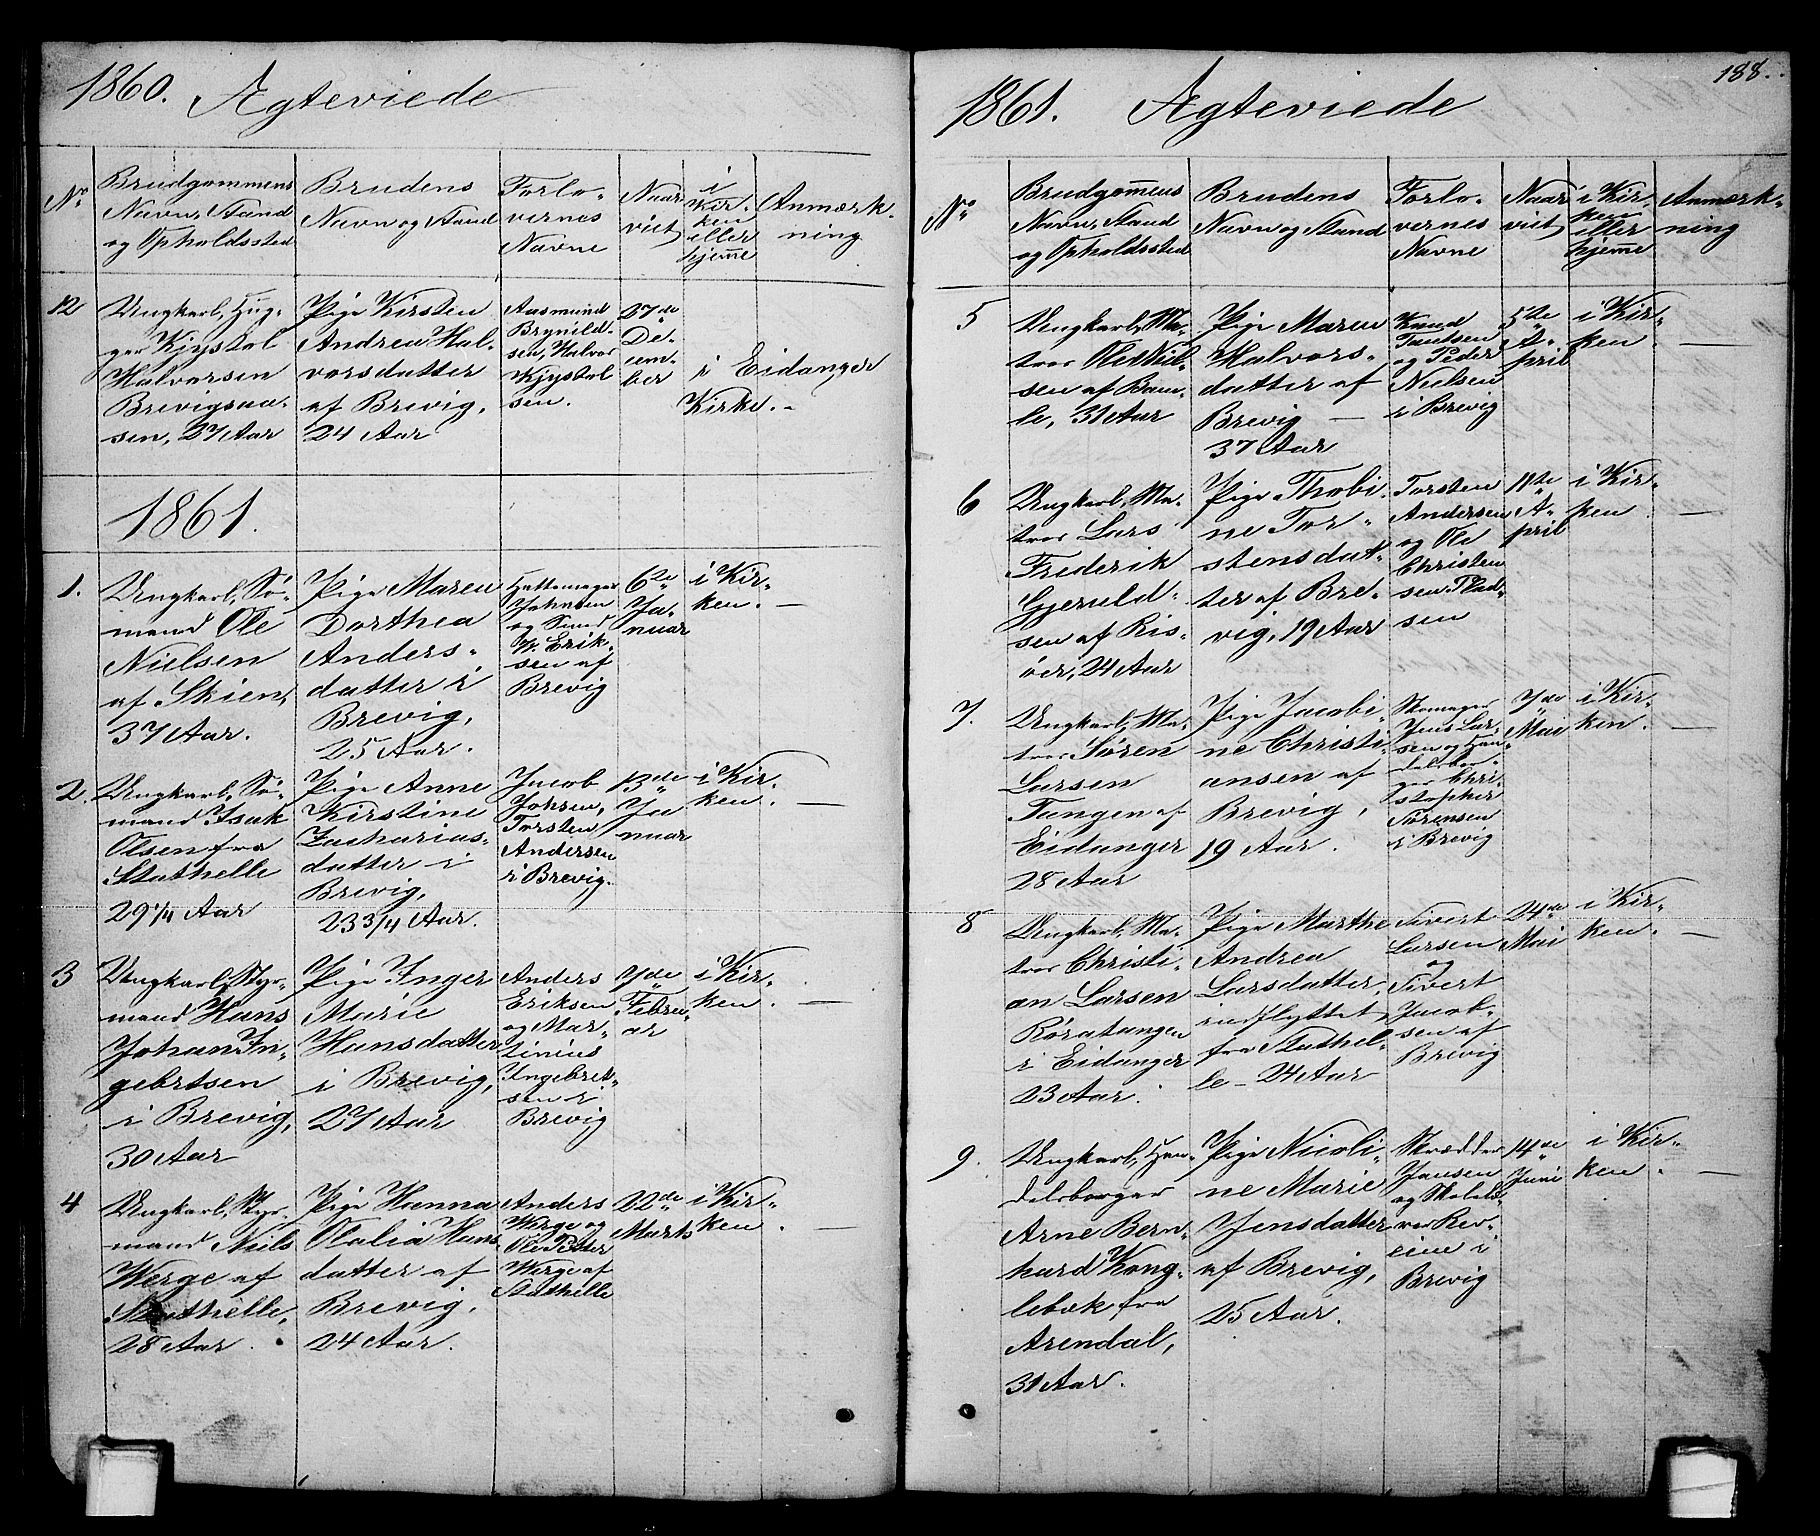 1860. Agteviede
No
Brudgommens
Navn, Stand
og Opholdssted
Brudens
Navn og Stand
Forlo-
vernes
Navne
Naar
viet
i
Kir-
ken
eller
hjeme
Anmærk-
ning
12
Ungkarl, Hug-
ger Kjystol
Halvorsen
Brevigsaa-
sen, 27 Aar
Pige Kirsten
Andrea Hal-
vorsdatter
af Brevig,
24 Aar
Aasmund
Brynild-
sen, Halvor
Kjystol
sen.
27de
De-
cem-
ber
i Eidanger
Kirke. -
1861.
1.
Ungkarl, Sø-
mand Ole
Nielsen
af Skien,
37 Aar.
Pige Maren
Dorthea
Anders-
datter i
Brevig,
25 Aar.
Hattemager
Johnsen
og
Erik-
sen af
Brevig
6te
Ja-
nuar
i Kir-
ken. —
2.
Ungkarl, Sø-
mand Isak
Olsen fra
Stathelle
29 1/4 Aar
Pige Anne
Kirstine
Zacharias-
datter i
Brevig,
23 3/4 Aar.
Jacob
Johsen,
Torsten
Andersen
i Brevig.
13de
Ja
nuar
i Kir-
ken. —
3
Ungkarl, Styr-
mand Hans
Johan In-
gebrtsen
i Brevig,
30 Aar
Pige Inger
Marie
Hansdatter
i Brevig,
27 Aar
Anders
Eriksen
og Mar-
tinius
Ingebrik-
sen i
Brevig
7de
Febru-
ar
i Kir-
ken. —
4
Ungkarl, Styr-
mand Niels
Werge af
Stathelle,
28 Aar.
Pige Hanna
Olalia Hans-
datter af
Brevig,
24 Aar.
Anders
Werge og
Ole Petter
Werge af
Stathelle
22de
Marts
i Kir-
ken. —
188.
1861. Agteviede
No
Brudgomens
Navn, Stand
og Opholdssted
Brudens
Navn og Stand
Forlo-
vernes
Navne
Naar
viet
i Kir-
ken
eller
hjeme
Anmærk-
ning
5
Ungkarl, Ma-
tros Ole Niel-
sen af Bam-
le, 31 Aar
Pige Maren
Halvors-
datter af
Brevig —
37 Aar
Knud
Paulsen
og Peder
Nielsen
i Brevig
5te
A-
pril
i Kir-
ken. —
6
Ungkarl, Ma-
tros Lars
Frederik
Gjeruld-
sen af Ris-
öer, 24 Aar
Pige Thobi-
ne Tor-
stensdat-
ter af Bre-
vig, 19 Aar
Torsten
Andersen
og Ole
Christen
sen
sen
11te
A-
pril
i Kir-
ken. —
7.
Ungkarl, Ma-
tros Søren
Larsen
Tangen af
Eidanger
28 Aar
Pige Jacobi-
ne Christi-
ansen af
Brevig,
19 Aar.
Skomager
Jens Lar-
sen og Han-
delsbor-
ger Chri
stopher
Sørensen
i Brevig
7de
Mai
i Kir-
ken. —
8
Ungkarl, Ma-
tros Christi-
an Larsen
Röratangen
i Eidanger
23 Aar.
Pige Marthe
Andrea
Larsdatter
indflyttet
fra Stathel-
le - 24 Aar
Sivert
Larsen
og
Sivert
Jacob-
sen af
Brevig
24de
Mai
i Kir-
ken. —
9.
Ungkarl, Han-
delsborger
Arne Bern-
hard Kong-
lebæk fra
Arendal,
31 Aar.
Pige Nicoli-
ne Marie
Jensdatter
af Brevig,
25 Aar.
Skrædder
Jansen
og
i
Brevig
14de
Juni
i Kir-
ken. —